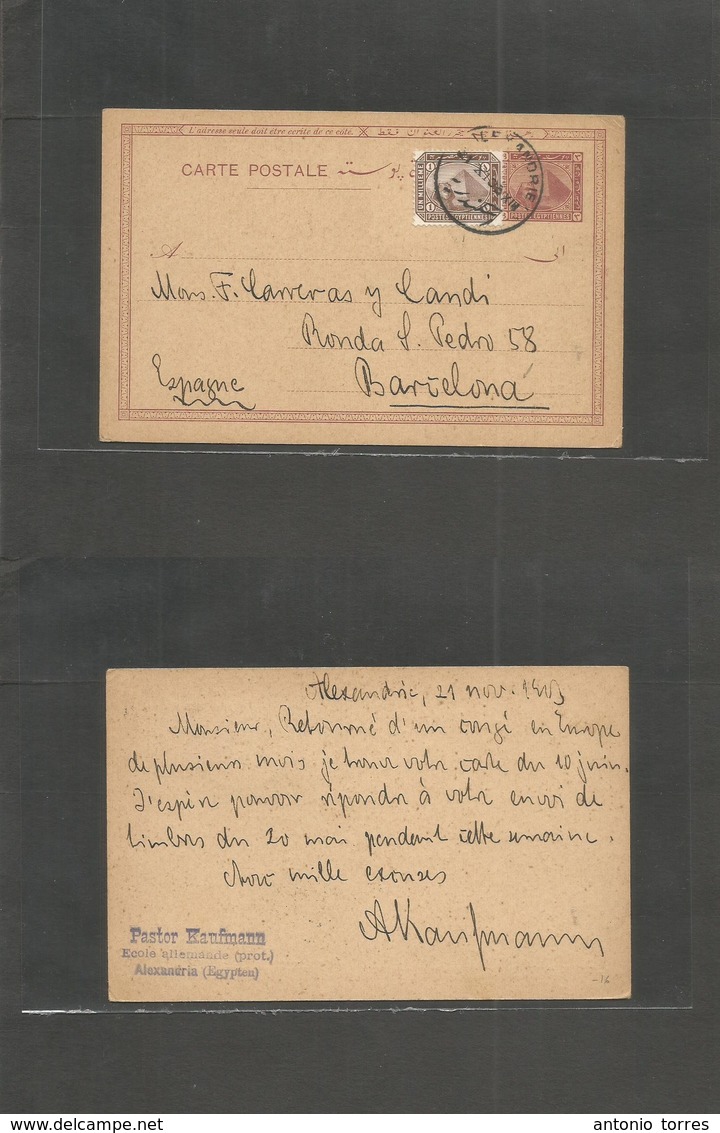 L'adresse seule doit être ecrite de ce côté.
CARTE POSTALE
UN MILLIEME
POSTES EGYPTIENNES
POSTES EGYPTIENNES
A
الى
Mons. F. Carreras y Candi
Ronda S. Pedro 58
Espagne
Barcelona
Alexandrie, 21 nov. 1903
Monsieur, Retourné d'un congé en Europe
de plusieurs mois je trouve votre carte du 10 juin.
J'espère pouvoir répondre à votre envoi de
timbres du 20 mai pendant cette semaine.
Avec mille excuses
AKaufmann
Pastor Kaufmann
Ecole allemande (prot.)
Alexandria (Egypten)
-16
www.delcampe.net
antonio torres